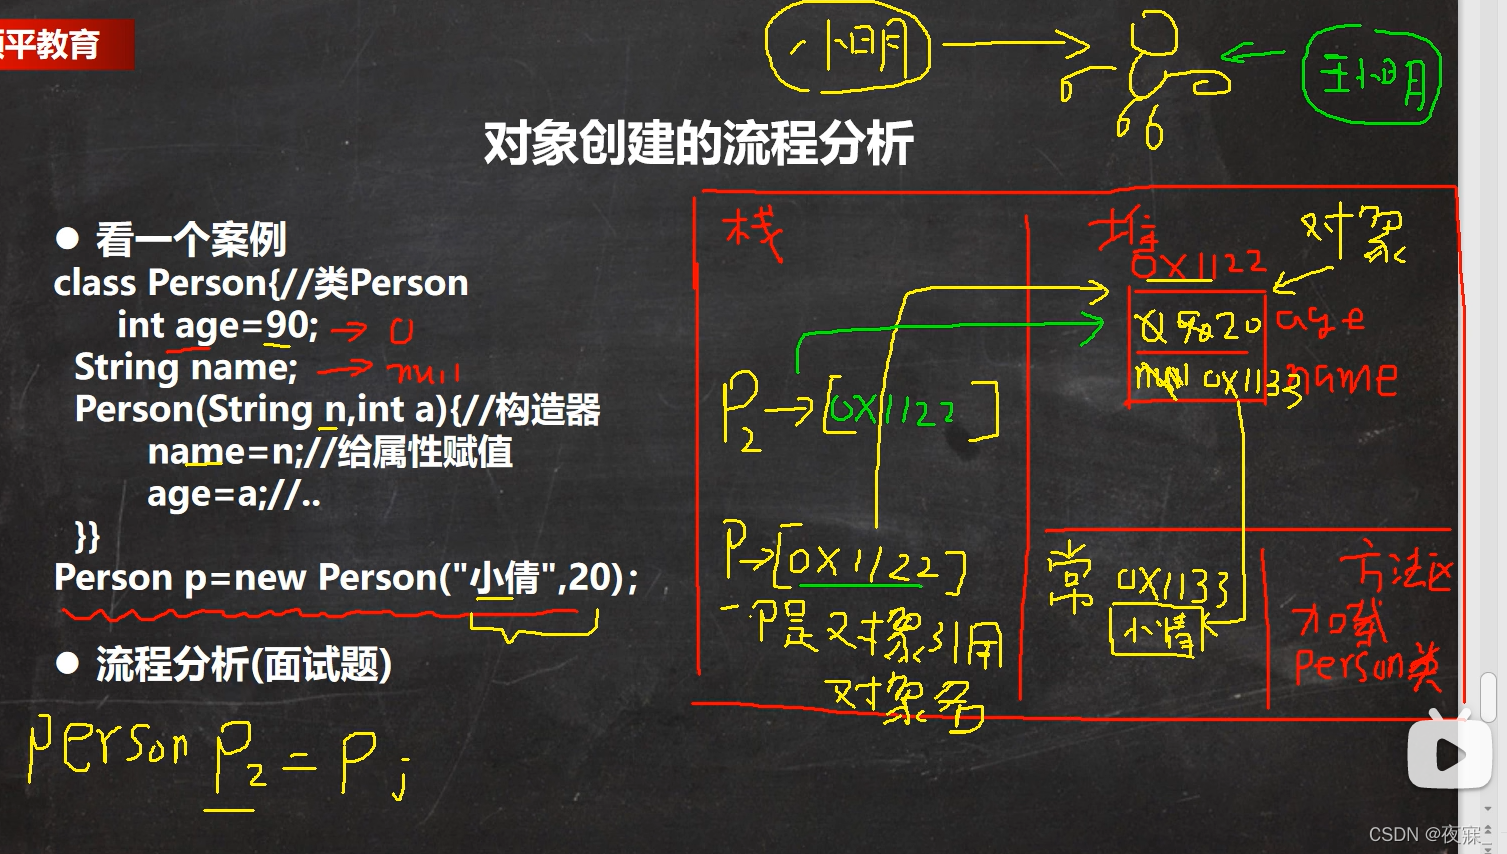 顺平教育
小明
王小明
对象创建的流程分析
● 看一个案例
class Person{//类Person
int age=90; → 0
String name; → null
Person(String n,int a){//构造器
name=n;//给属性赋值
age=a;//..
}}
Person p=new Person("小倩",20);
● 流程分析(面试题)
Person P2 = P;
栈
P2→[0X1122]
P→[0X1122]
一个是对象引用
对象名
堆
对象
0X1122
20 age
null 0X1133 name
常
0X1133
小倩
方法区
加载
Person类
CSDN @夜寐_